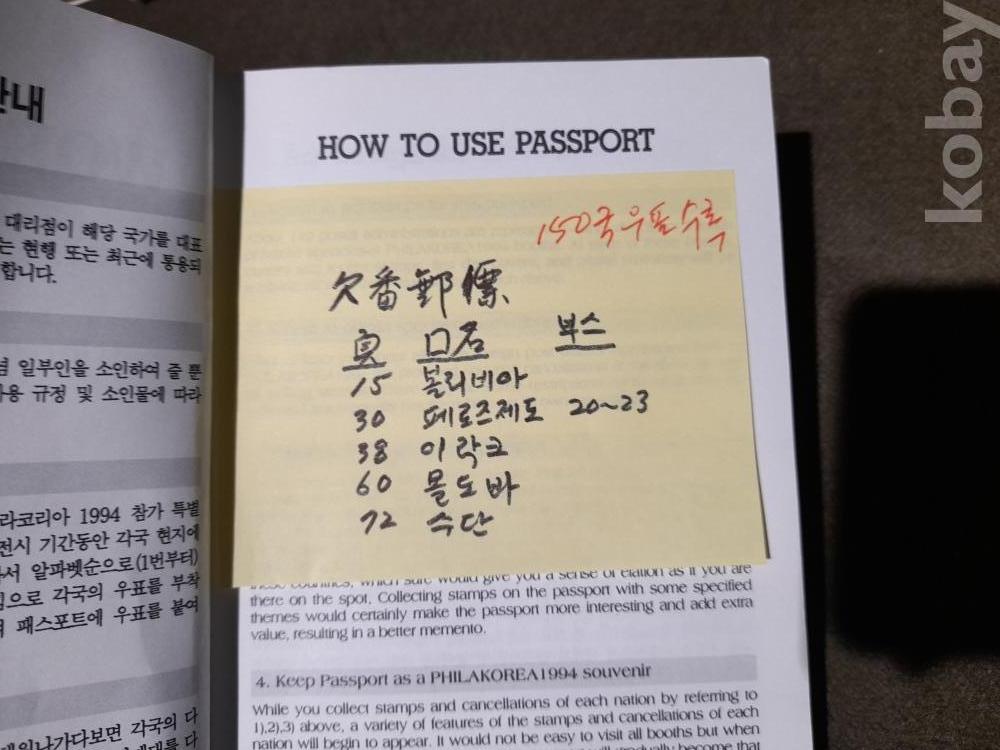 안내
대리점이 해당 국가를 대표
는 현행 또는 최근에 통용되
합니다.
일부인을 소인하여 줄 뿐
사용 규정 및 소인물에 따라
라코리아 1994 참가 특별
전시 기간동안 각국 현지에
서 알파벳순으로(1번부터)
으로 각국의 우표를 부착
패스포트에 우표를 붙여
다보면 각국의 다
HOW TO USE PASSPORT
150국 우표수록
欠番郵標
頁 口名 부스
15 볼리비아
30 페로즈제도 20~23
38 이락크
60 몰도바
72 수단
these countries, which sure would give you a sense of elation as if you are
there on the spot. Collecting stamps on the passport with some specified
themes would certainly make the passport more interesting and add extra
value, resulting in a better memento.
4. Keep Passport as a PHILAKOREA1994 souvenir
While you collect stamps and cancellations of each nation by referring to
1),2),3) above, a variety of features of the stamps and cancellations of each
nation will begin to appear. It would not be easy to visit all booths but when
will gradually become that
kobay